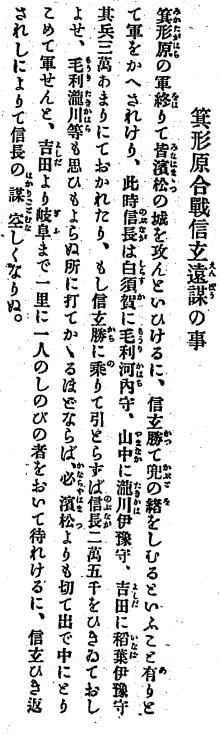 箕形原合戰信玄遠謀の事
箕形原の軍終りて皆濱松の城を攻んといひけるに、信玄勝て兜の緒をしむるといふこと有りと
て軍をかへされけり、此時信長は白須賀に毛利河內守、山中に瀧川伊豫守、吉田に稻葉伊豫守
其兵三萬あまりにておかれたり、もし信玄勝に乘りて引とらずば信長二萬五千をひきゐておし
よせ、毛利瀧川等も思ひもよらぬ所に打てかゝるほどならば、必濱松よりも切て出で中にとり
こめて軍せんと、吉田より岐阜まで一里に一人のしのびの者をおいて待れけるに、信玄ひき返
されしによりて信長の謀空しくなりぬ。